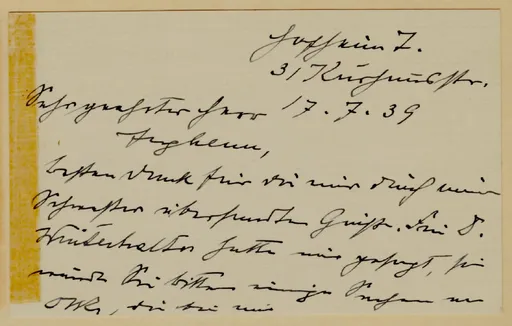 Hofheim T.
31 Kurhausstr.
Sehr geehrter Herr 17.7.39
besten Dank für die mir durch meine
Schwester übersandten Grüße. Frl D.
Winterhalter hatte mir gesagt, sie
würde Sie bitten einige Sachen von
die bei mir